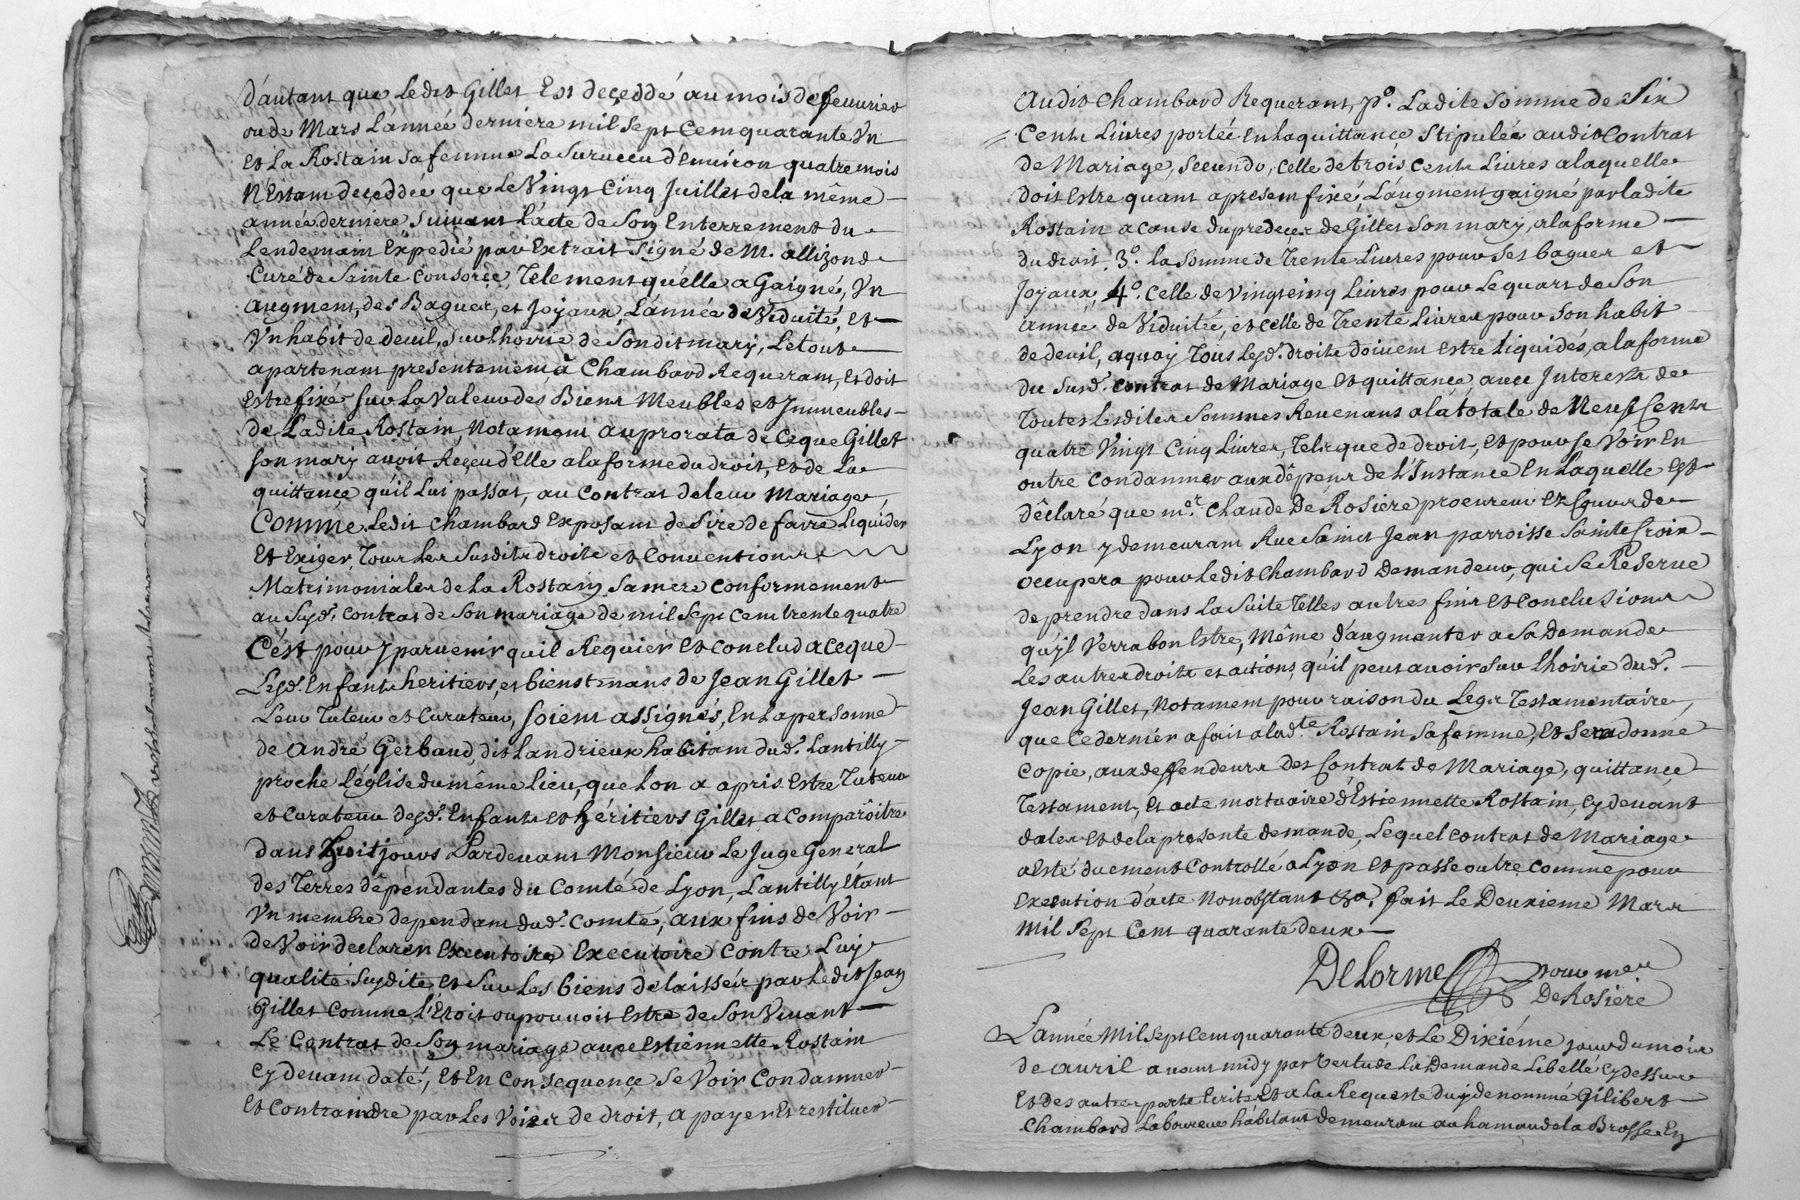 d'autant que Ledit Gillet Est deçeddé au mois de feuurier
ou de Mars L'année derniere mil sept Cent quarante Un
et La Rostain sa femme La suruecu d'Enuiron quatre mois
N'Estant deçeddée que Le Vingt Cinq Juillet de la même
année derniere suiuant l'acte de son Enterrement du
Lendemain Expedié par Extrait signé de M. allizond
Curé de Sainte Consorce, Telement qu'elle a Gaigné, Un
augment, des Bagues, et Joyaux, L'année de Viduité, et
Un habit de deuil, sur l'hoirie de son dit mary, Le tout
apartenant presentement, à Chambard Requerant, et doit
estre fixé sur La Valeur des Biens Meubles et Immeubles
de Ladite Rostain, Notament au prorata de Ce que Gillet
son mary auoit Reçeu d'Elle a la forme du droit, et de La
quittance qu'il Lui passat, au Contrat de leur Mariage,
Comme Ledit Chambard Exposant desire de faire Liquider
Et Exiger Tous Les susdits droits et Conuentions
Matrimoniales de La Rostain sa mere Conformement
au susd. Contrat de son mariage de mil sept Cent trente quatre
C'est pour y paruenir qu'il Requier et Conclud a Ce que
Lesd. Enfants heritiers, et bienstenans de Jean Gillet
Leur Tuteur et Curateur, soient assignés, En La personne
de André Gerbaud, dit Landrieux habitant dud. Lantilly
proche L'église du même Lieu, que Lon a apris Estre Tuteur
et Curateur desd. Enfants et héritiers Gillet, a Comparoitre
dans huit jours Pardeuant Monsieur Le Juge General
des Terres dépéndantes du Comté de Lyon, Lantilly Etant
Un membre dependant dud. Comté, aux fins de Voir
de Voir declarer Executoires Executoire Contre Luy
qualite susdite, et sur Les biens delaissés par Ledit Jean
Gillet Comme l'Etoit ou pouuoit Estre de son Viuant
Le Contrat de son mariage auec Estiennette Rostain
Cy deuant daté, Et En Consequence se Voir Condamner
Et Contraindre par Les Voies de droit, a payer Et restituer
Audit Chambard Requerant, P.º Ladite somme de Six
Cents Liures portée En La quittance stipulée audit Contrat
de Mariage, Secundo, Celle de trois Cents Liures a laquelle
doit Estre quant a present fixé, L'augment gaigné par ladite
Rostain a Cause du predeces de Gillet son mary, a la forme
du droit, 3.º la somme de Trente Liures pour ses bagues et
Joyaux, 4.º Celle de Vingt cinq Liures pour Le quart de son
année de Viduitée, et Celle de Trente Liures pour son habit
de deuil, a quoy Tous Lesd. droits doiuent Estre Liquidés, a la forme
du susd. Contrat de Mariage et quittance, auec Interests de
Toutes Lesdites sommes Reuenans a la totale de Neuf Cents
quatre Vingt Cinq Liures, Tels que de droit, et pour se Voir En
outre Condamner aux dépens de L'Instance En Laquelle Est
déclaré que m.e Claude De Rosiere procureur Ez Cours de
Lyon y demeurant Rue Saint Jean parroisse Sainte Croix
occupera pour Ledit Chambard Demandeur, qui se Reserue
de prendre dans La suite Telles autres fins et Conclusions
qu'il Verra bon Estre, Même d'augmenter a sa Demande
Les autres droits et actions, qu'il peut auoir sur l'hoirie dud.
Jean Gillet, Notament pour raison du Legs Testamentaire,
que Ce dernier a fait a lad.te Rostain sa femme, Et sera donné
Copie, aux deffendeurs des Contrat de Mariage, quittance
Testament, Et acte mortuaire d'Estiennette Rostain, Cy deuant
datés et de la presente demande, Lequel Contrat de Mariage
a Esté duement Controllé a Lyon Et passe outre Comme pour
Execution d'acte Nonobstant &a. fait Le Deuxieme Mars
Mil Sept Cent quarante deux
DeLorme pour me
De Rosiere
L'année Mil Sept Cent quarante deux, et Le Dixiéme jour du mois
de auril auant midy par Vertu de La Demande Libellé Cy dessus
Et des autres parts Ecrites Et a La Requeste dudi denommé Gilibert
Chambard Laboureur habitant demeurant au hamau de la Brosse En